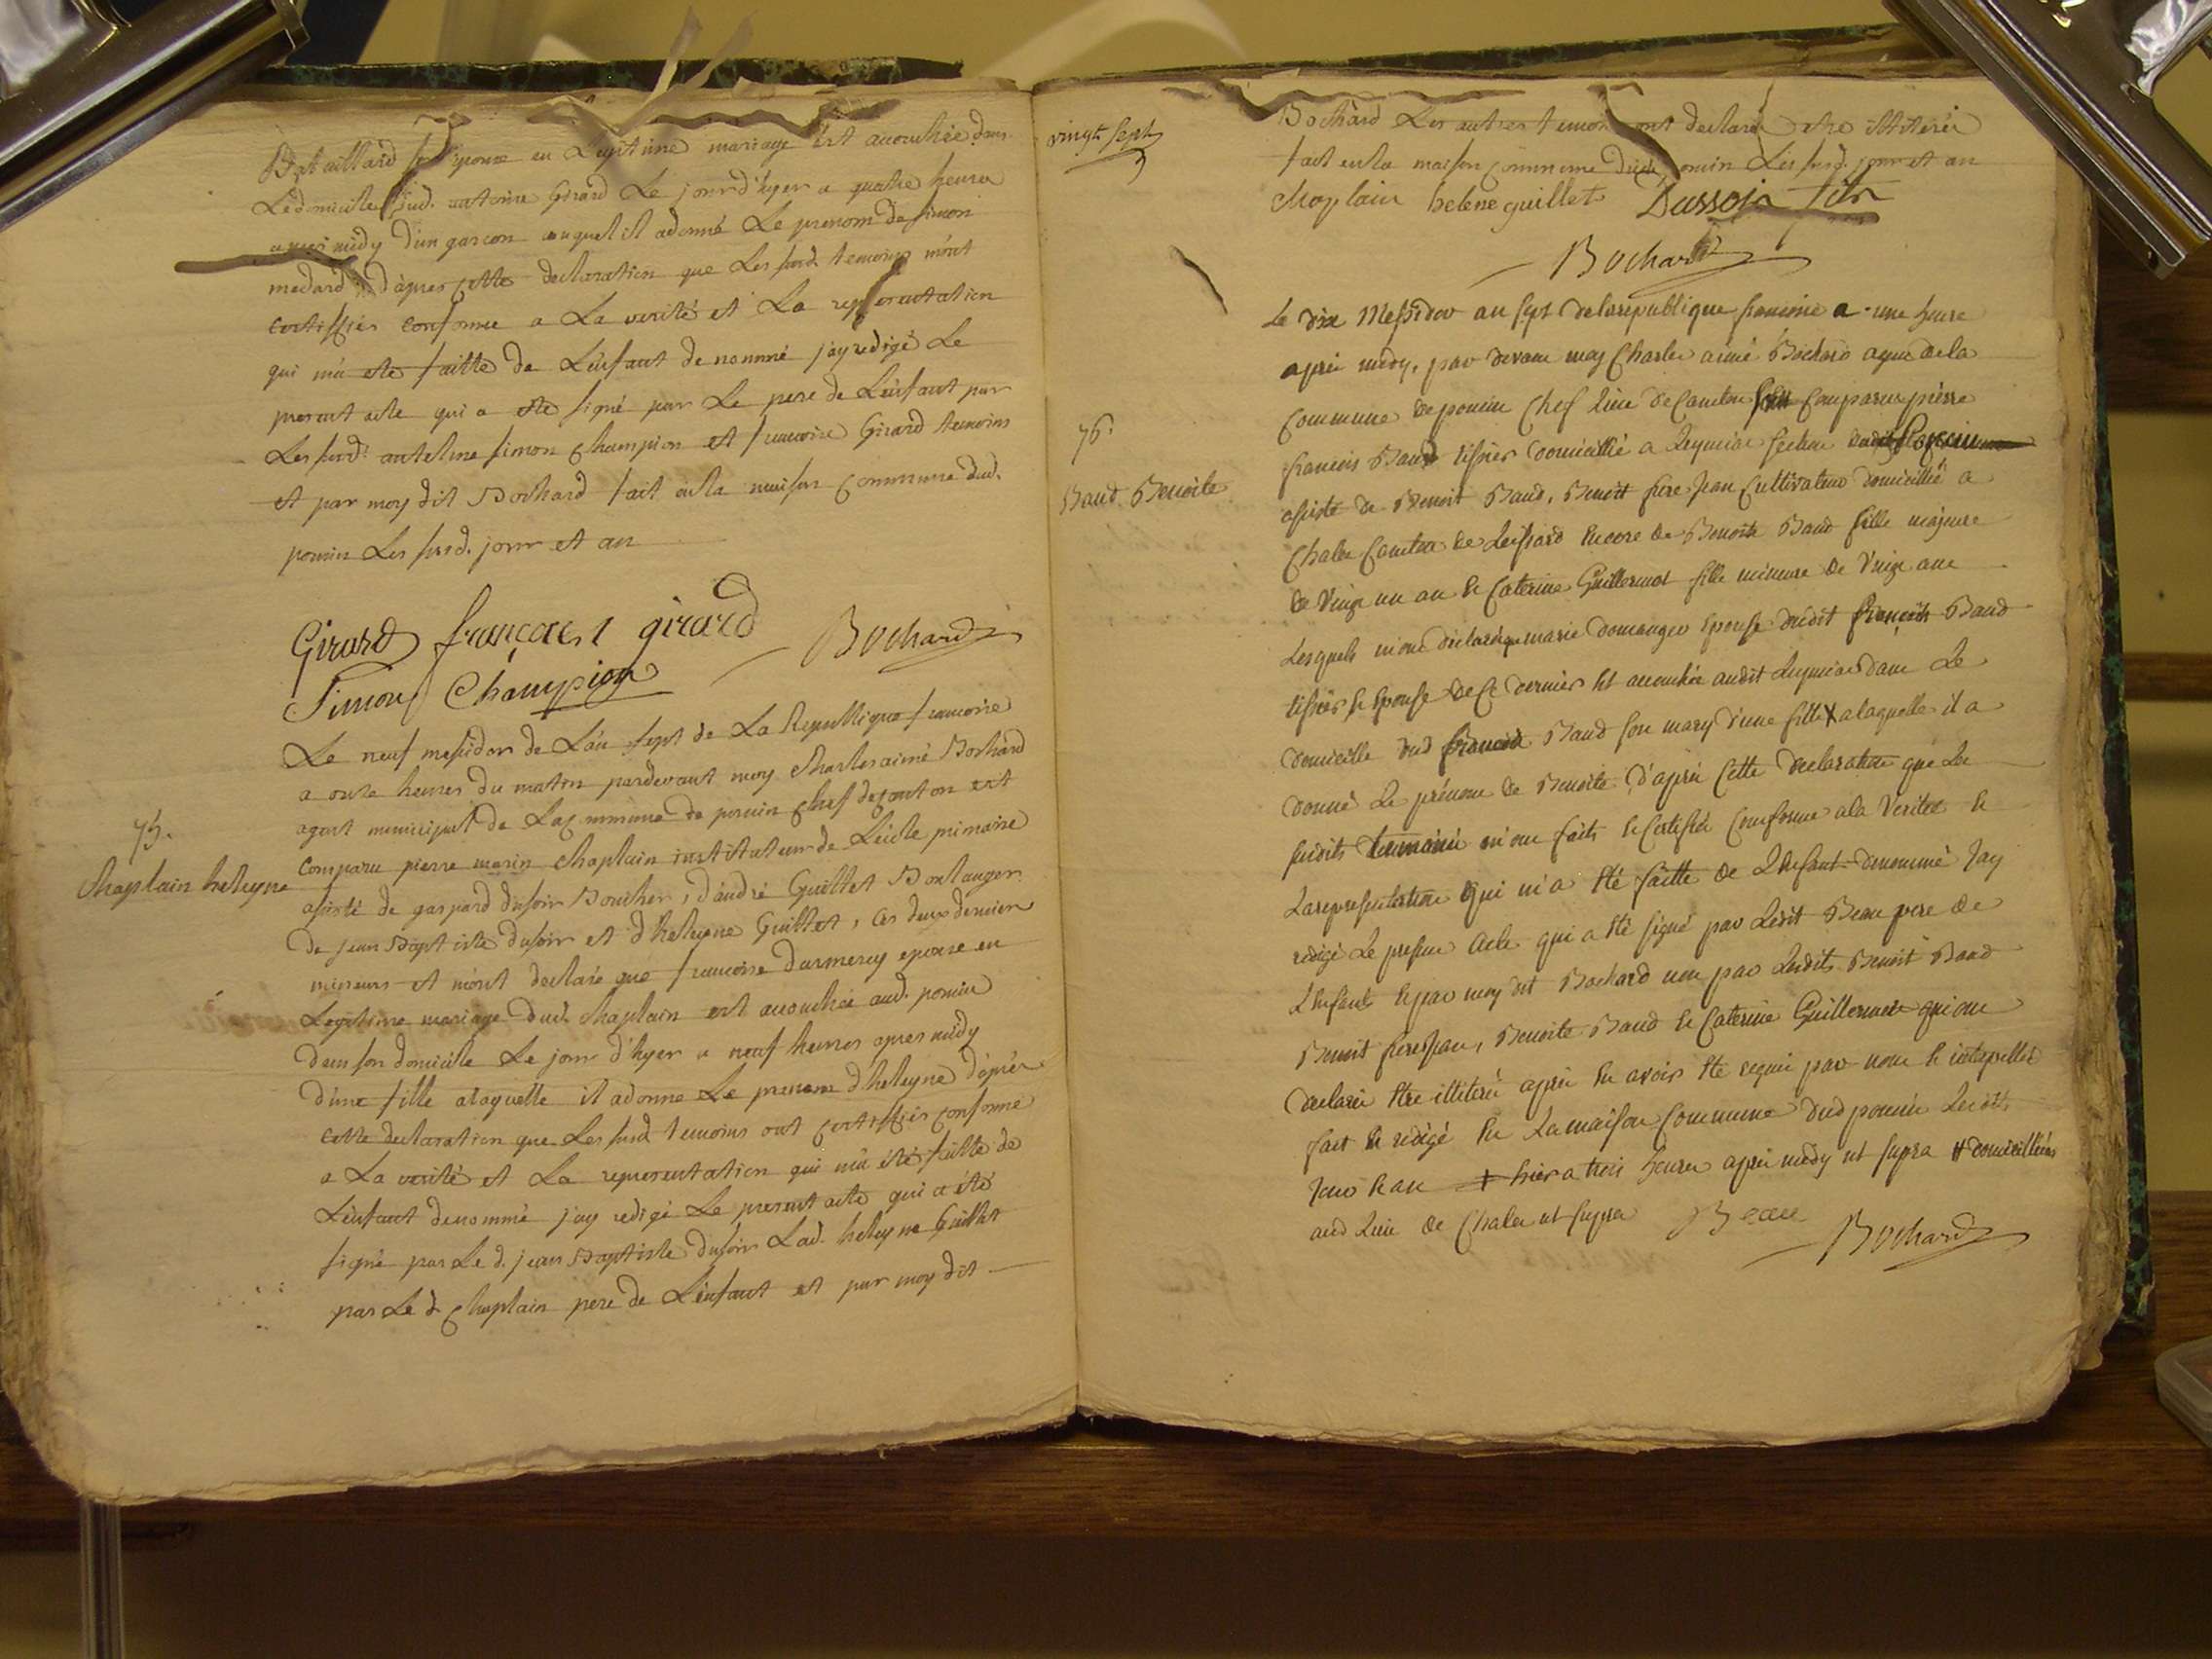 Bataillard son epouse en Legitime mariage est accouchée dans
Le domicile dud. antoine Girard Le jour d'hyer a quatre heures
apres midy d'un garcon auquel il a donné Le prenom de simon
medard d'apres cette declaration que Les susd. temoins m'ont
certiffiés conforme a La verité et La representation
qui m'a ete faitte de L'enfant denommé j'ay redigé Le
present acte qui a ete signé par Le pere de L'enfant par
Les susd. simon Champion et francoise Girard temoins
et par moy dit Bochard fait en la maison commune dud.
poncin Les susd. jour et an
Girard françoise girard
Simon Champion Bochard
75.
Chaplain heleyne
Le neuf messidor de L'an sept de La Republique francoise
a onze heures du matin pardevant moy Charles aimé Bochard
agent municipal de La commune de poncin chef de canton est
comparu pierre marin Chaplain instituteur de L'ecole primaire
assisté de gaspard dusoir Boucher, d'andré Guillet Boulanger
de jean Baptiste dusoir et d'heleyne Guillet, ces deux derniers
mineurs et m'ont declaré que francoise darmercy epouse en
Legitime mariage dud. Chaplain est accouchée aud. poncin
dans son domicile Le jour d'hyer a neuf heures apres midy
d'une fille a laquelle il a donné Le prenom d'heleyne d'après
cette declaration que Les susd. temoins ont certiffiés conforme
a La verité et La representation qui m'a été faitte de
L'enfant denommé j'ay redigé Le present acte qui a été
signé par Le d. jean Baptiste dusoir Lad. heleyne Guillet
par Le d. Chaplain pere de L'enfant et par moy dit
vingt sept
Bochard Les autres temoins ont declaré etre illiterés
fait en la maison commune dud. poncin Les susd. jour et an
Chaplain helene guillet Dussoir fils
Bochard
76.
Baud Benoite
Le dix Messidor an sept de la republique francoise a une heure
après midy, par devant moy Charles aimé Bochard agent de la
commune de poncin chef lieu de canton comparu pierre
francois Baud tissier domicillié a Leymiat section dudit Poncin
assisté de Benoit Baud, Benoit frere Jean cultivateur domicillié a
Chaley canton de Leissard encore de Benoite Baud fille majeure
de vingt un an et Caterine Guillermet fille mineure de vingt ans
Lesquels m'ont declaré que marie domanger epouse dudit françois Baud
tissier et epouse de ce dernier est accouchée audit Leymiat dans Le
domicille dud francois Baud son mary d'une fille X a laquelle il a
donné Le prénom de Benoite, d'après cette declaration que Les
susdits temoins m'ont faits et certifiés conforme a la verité et
La representation qui m'a été faitte de L'enfant denommé Jay
redigé Le present acte qui a été signé par Ledit Beau pere de
L'enfant et par moy dit Bochard non par Lesdits Benoit Baud
Benoit frere Jean, Benoite Baud et Caterine Guillermet qui ont
declaré etre illiterés après en avoir été requis par nous et interpellés
fait et redigé en La maison commune dud poncin Lesdits
jour et an + hier a trois heures après midy ut supra # domicilliées
aud Lieu de Chaley ut supra Beau Bochard